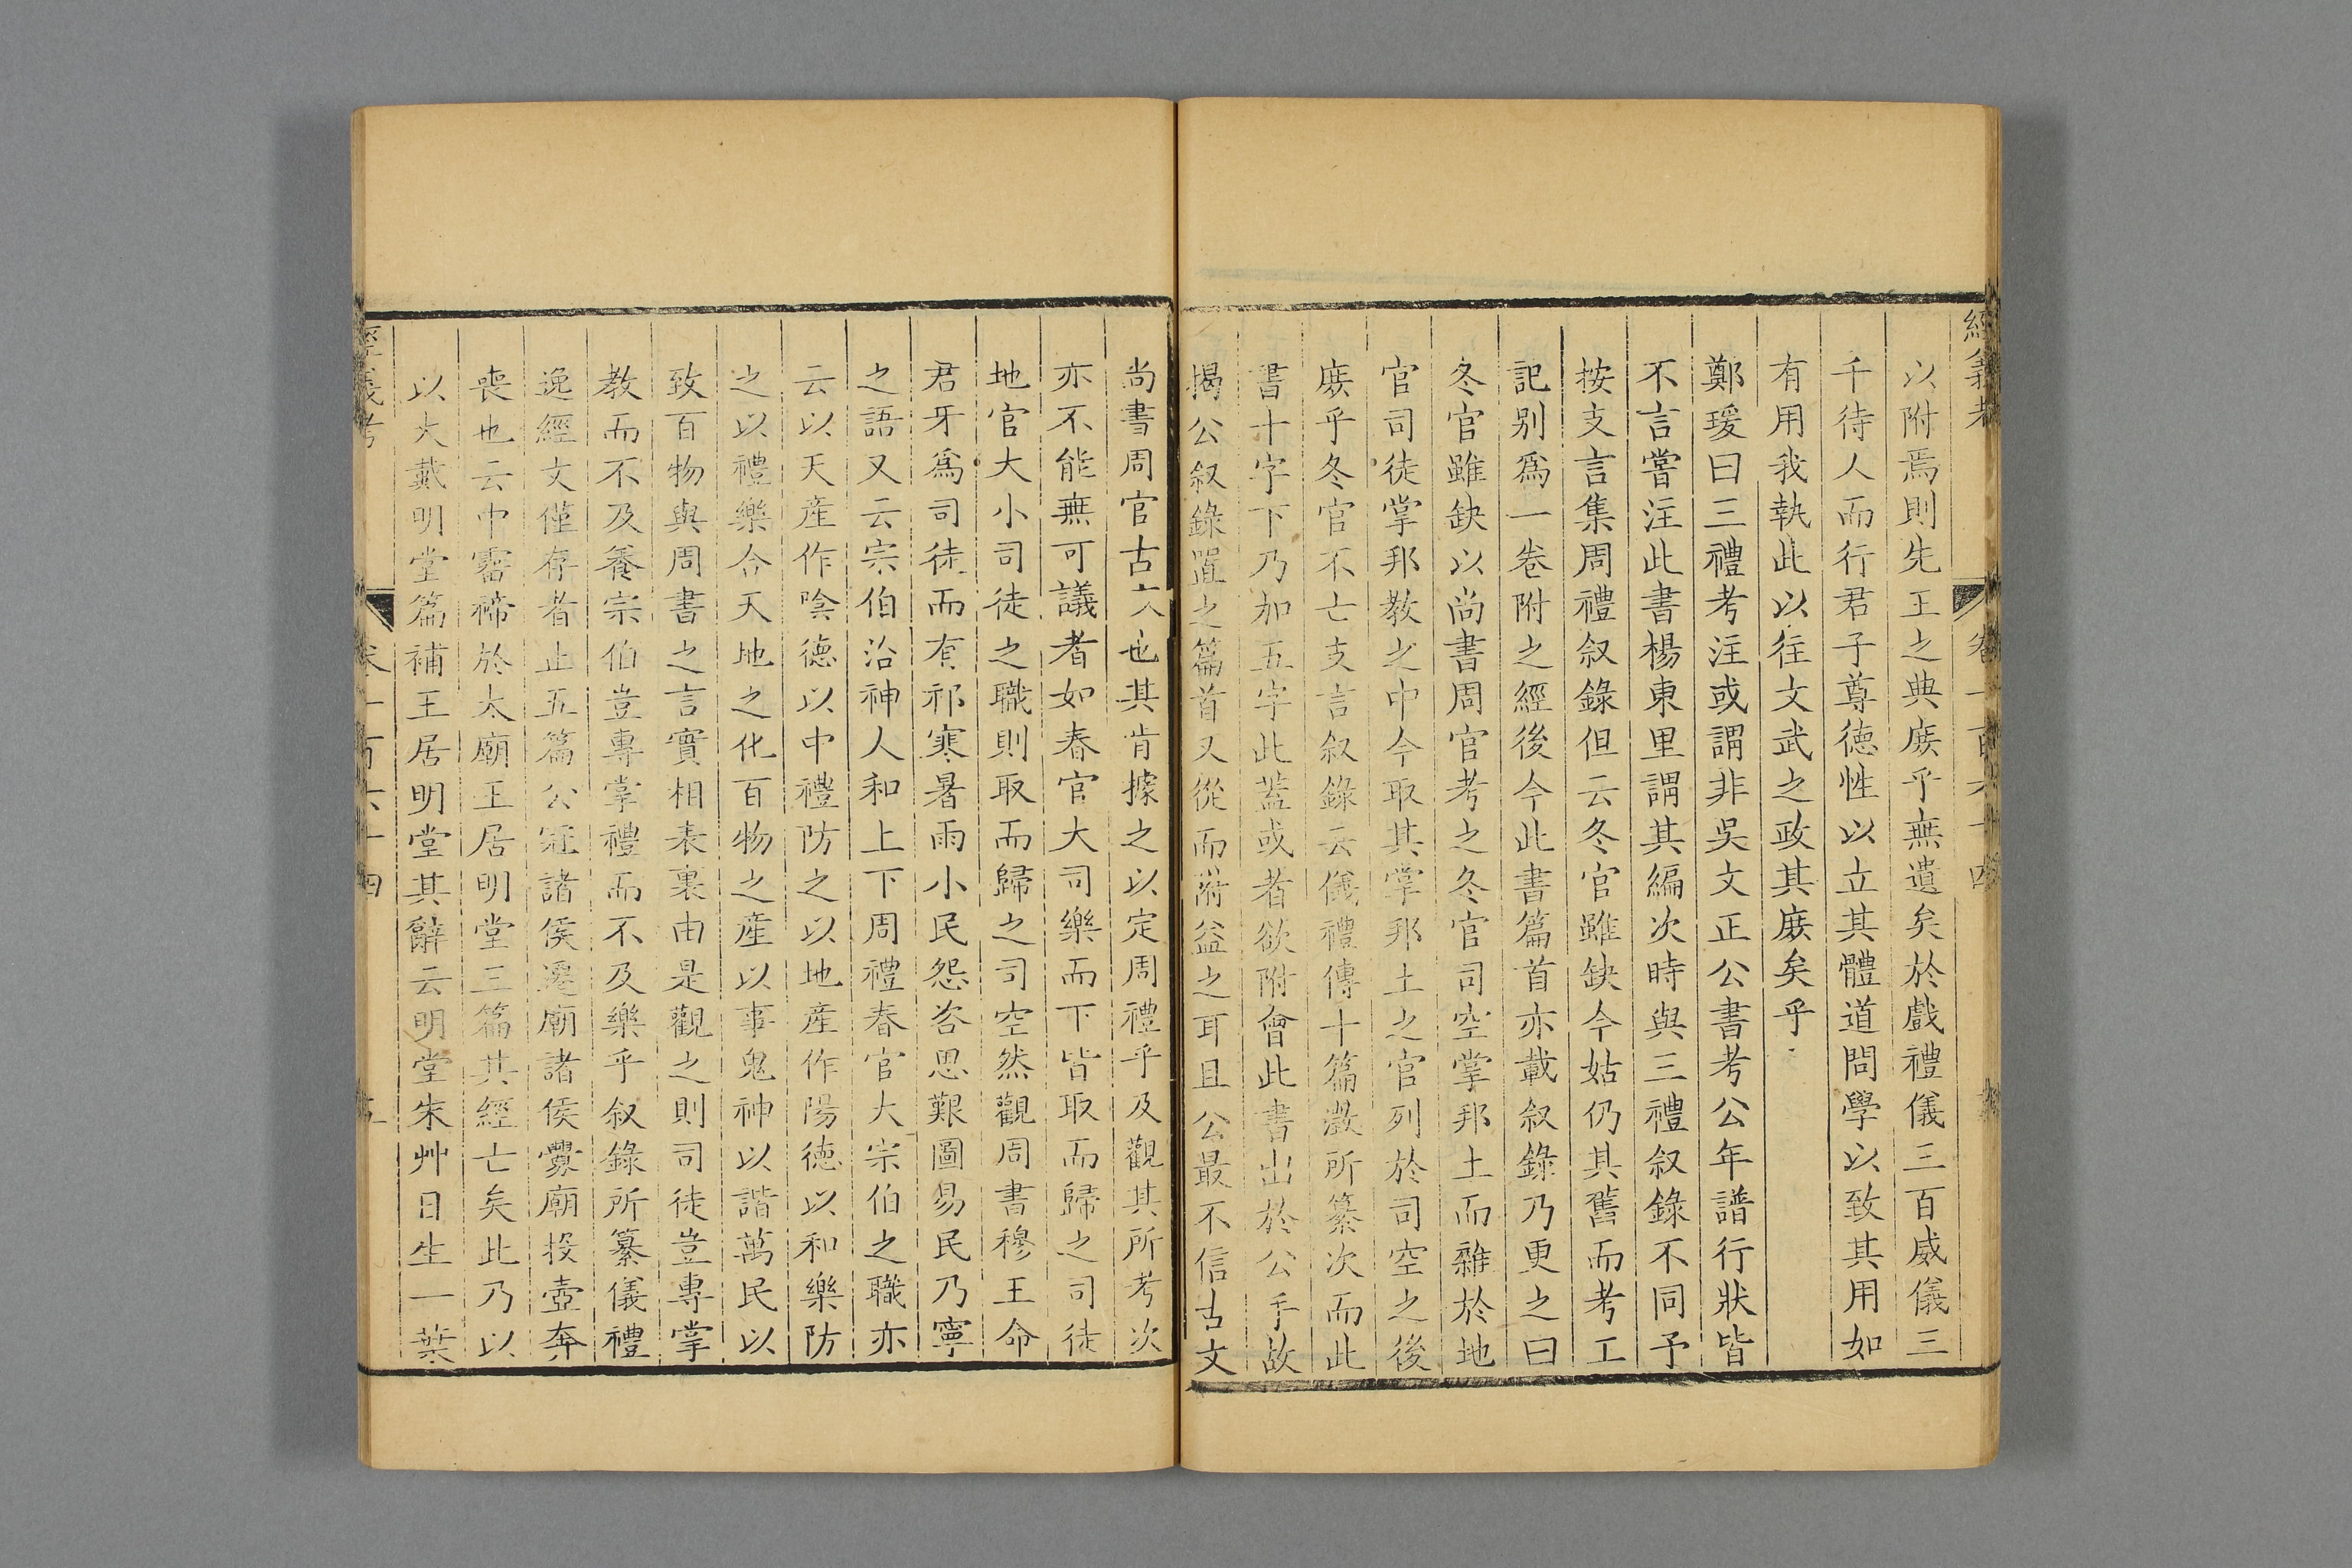 經義考 卷一百六十四
以附焉則先王之典庶乎無遺矣於戲禮儀三百威儀三
千待人而行君子尊德性以立其體道問學以致其用如
有用我執此以往文武之政其庶矣乎
鄭瑗曰三禮考注或謂非吳文正公書考公年譜行狀皆
不言嘗注此書楊東里謂其編次時與三禮叙錄不同予
按支言集周禮叙錄但云冬官雖缺今姑仍其舊而考工
記别爲一卷附之經後今此書篇首亦載叙錄乃更之曰
冬官雖缺以尚書周官考之冬官司空掌邦土而雜於地
官司徒掌邦教之中今取其掌邦土之官列於司空之後
庶乎冬官不亡支言叙錄云儀禮傳十篇澂所纂次而此
書十字下乃加五字此蓋或者欲附會此書出於公手故
揭公叙錄置之篇首又從而附益之耳且公最不信古文
尚書周官古文也其肯據之以定周禮乎及觀其所考次
亦不能無可議者如春官大司樂而下皆取而歸之司徒
地官大小司徒之職則取而歸之司空然觀周書穆王命
君牙爲司徒而有祁寒暑雨小民怨咨思艱圖易民乃寧
之語又云宗伯治神人和上下周禮春官大宗伯之職亦
云以天産作陰德以中禮防之以地産作陽德以和樂防
之以禮樂合天地之化百物之産以事鬼神以諧萬民以
致百物與周書之言實相表裏由是觀之則司徒豈專掌
教而不及養宗伯豈專掌禮而不及樂乎叙錄所纂儀禮
逸經文僅存者止五篇公冠諸侯遷廟諸侯釁廟投壺奔
喪也云中霤禘於太廟王居明堂三篇其經亡矣此乃以
以大戴明堂篇補王居明堂其辭云明堂朱艸日生一葉
經義考 卷一百六十四 五